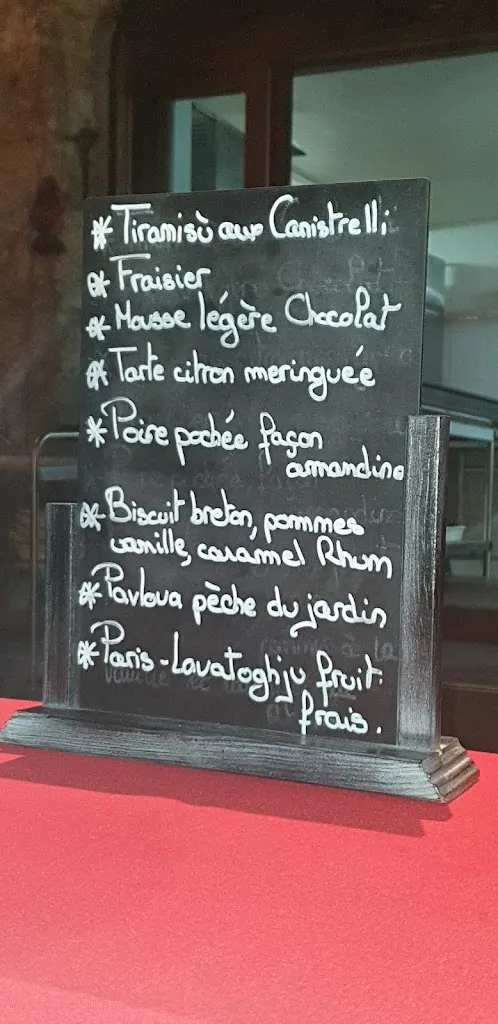 * Tiramisù aux Canistrelli
* Fraisier
* Mousse légère Chocolat
* Tarte citron meringuée
* Poire pochée façon
amandine
* Biscuit breton, pommes
vanille, caramel Rhum
* Pavlova pêche du jardin
* Paris-Lavatoghju fruit
frais.